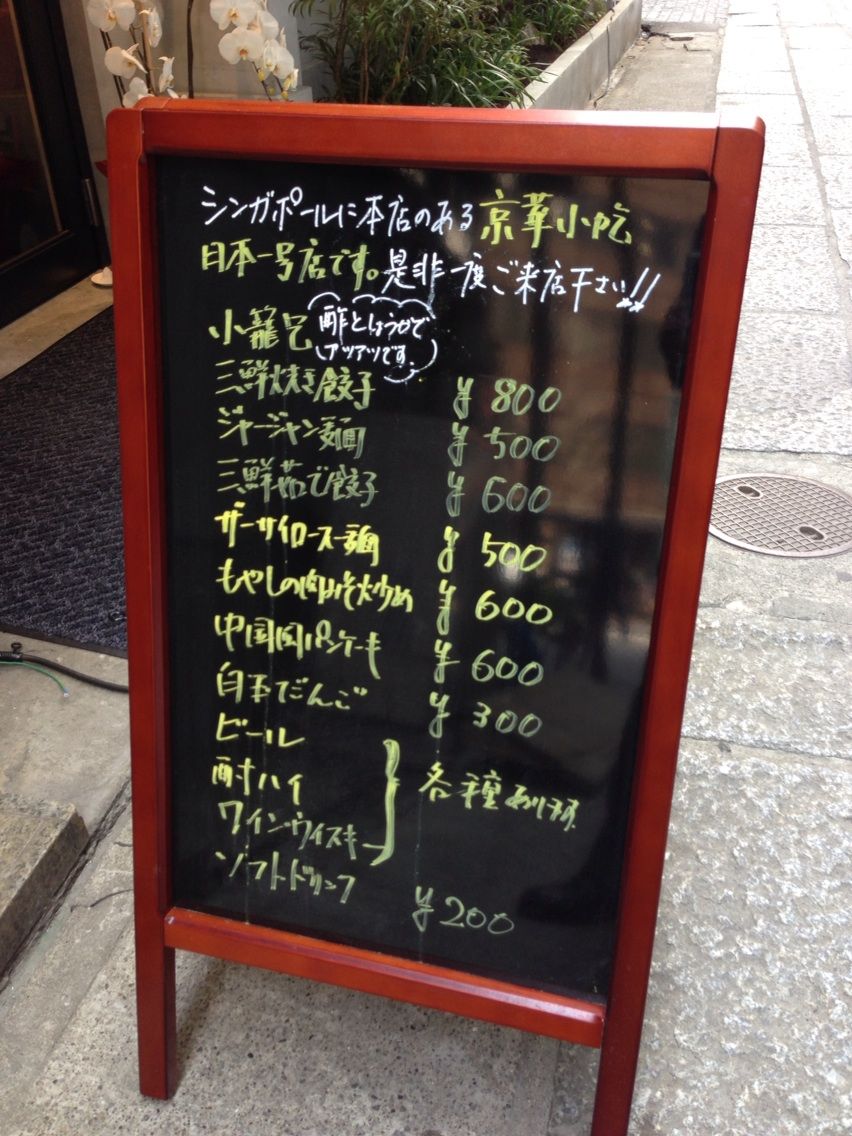 シンガポールに本店のある 京華小吃
日本一号店です。是非一度ご来店下さい!!
小籠包 酢としょうがで
アツアツです。
三鮮焼き餃子 ¥800
ジャージャン麺 ¥500
三鮮茹で餃子 ¥600
ザーサイロース麺 ¥500
もやしの肉みそ炒め ¥600
中国風パンケーキ ¥600
白玉だんご ¥300
ビール
酎ハイ 各種あります。
ワイン・ウイスキー
ソフトドリンク ¥200